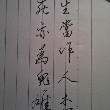 生當作人杰
死亦為鬼雄